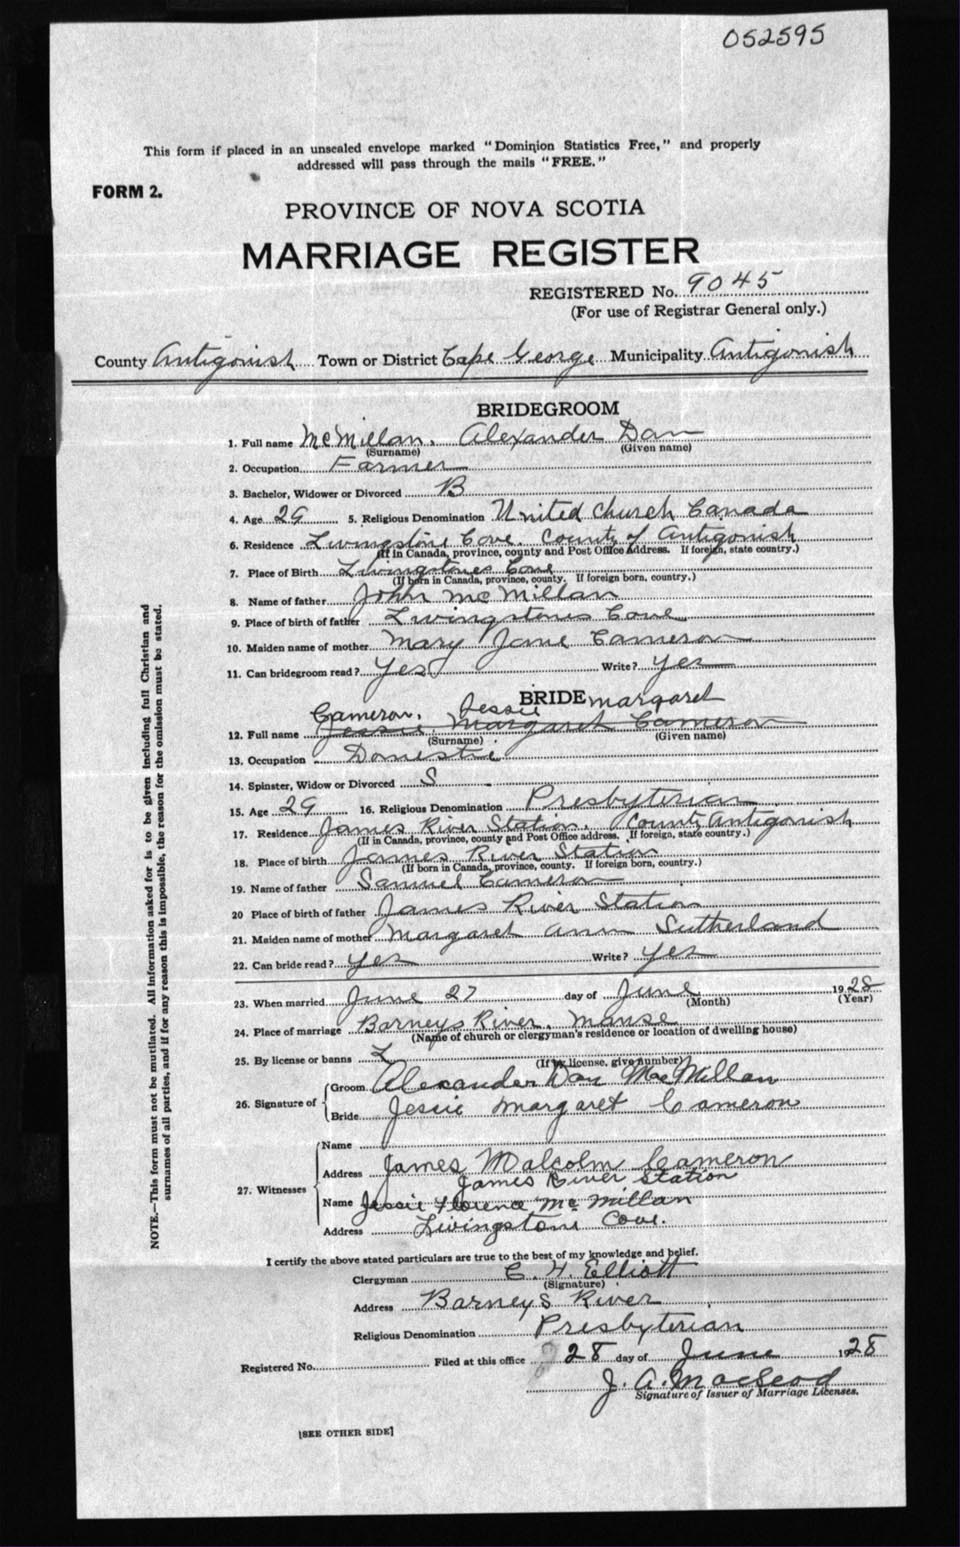 052595
This form if placed in an unsealed envelope marked "Dominion Statistics Free," and properly
addressed will pass through the mails "FREE."
FORM 2.
PROVINCE OF NOVA SCOTIA
MARRIAGE REGISTER
REGISTERED No. 9045
(For use of Registrar General only.)
County Antigonish Town or District Cape George Municipality Antigonish
BRIDEGROOM
1. Full name McMillan, Alexander Dan
(Surname) (Given name)
2. Occupation Farmer
3. Bachelor, Widower or Divorced B
4. Age 29 5. Religious Denomination United Church Canada
6. Residence Livingstone Cove. County of Antigonish
(If in Canada, province, county and Post Office Address. If foreign, state country.)
7. Place of Birth Livingstones Cove
(If born in Canada, province, county. If foreign born, country.)
8. Name of father John McMillan
9. Place of birth of father Livingstones Cove
10. Maiden name of mother Mary Jane Cameron
11. Can bridegroom read? Yes Write? Yes
BRIDE
Cameron, Jessie Margaret
12. Full name Jessie Margaret Cameron
(Surname) (Given name)
13. Occupation Domestic
14. Spinster, Widow or Divorced S
15. Age 29 16. Religious Denomination Presbyterian
17. Residence James River Station, County Antigonish
(If in Canada, province, county and Post Office address. If foreign, state country.)
18. Place of birth James River Station
(If born in Canada, province, county. If foreign born, country.)
19. Name of father Samuel Cameron
20 Place of birth of father James River Station
21. Maiden name of mother Margaret Ann Sutherland
22. Can bride read? Yes Write? Yes
23. When married June 27 day of June 1928
(Month) (Year)
24. Place of marriage Barneys River, Manse
(Name of church or clergyman's residence or location of dwelling house)
25. By license or banns L
(If by license, give number)
26. Signature of Groom Alexander Dan MacMillan
Bride Jessie Margaret Cameron
27. Witnesses Name
Address James Malcolm Cameron
James River Station
Name Jessie Florence McMillan
Address Livingstone Cove.
I certify the above stated particulars are true to the best of my knowledge and belief.
Clergyman C. H. Elliott
(Signature)
Address Barneys River
Religious Denomination Presbyterian
Registered No. Filed at this office 28 day of June 1928
J. A. MacLeod
Signature of Issuer of Marriage Licenses.
[SEE OTHER SIDE]
NOTE.—This form must not be mutilated. All information asked for is to be given including full Christian and
surnames of all parties, and if for any reason this is impossible, the reason for the omission must be stated.